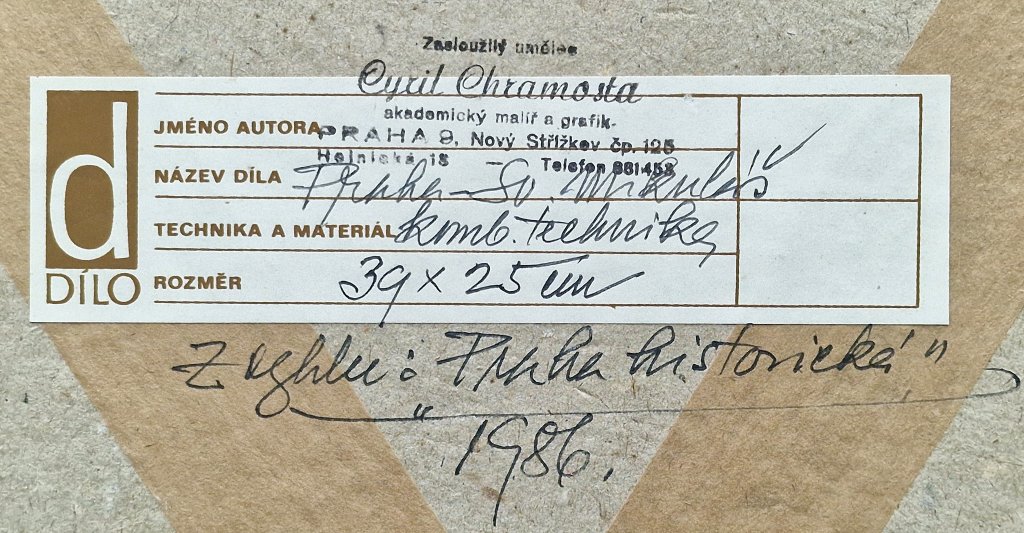 Zasloužilý umělec
Cyril Chramosta
akademický malíř a grafik-
JMÉNO AUTORA PRAHA 9, Nový Střížkov čp. 125
Hejnická 18 – Telefon 881458
NÁZEV DÍLA Praha – Sv. Mikuláš
TECHNIKA A MATERIÁL komb. technika
d
DÍLO
ROZMĚR 39 x 25 cm
Z cyklu: „Praha historická"
1986.